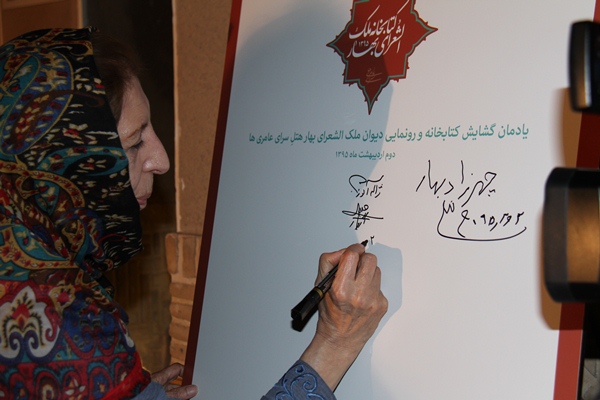 کتابخانه ملک
الشعرای بهار
۱۳۹۵
یادمان گشایش کتابخانه و رونمایی دیوان ملک الشعرای بهار هتل سرای عامری ها
دوم اردیبهشت ماه ۱۳۹۵
چهرزاد بهار
۹۵٫۲٫۲
۲